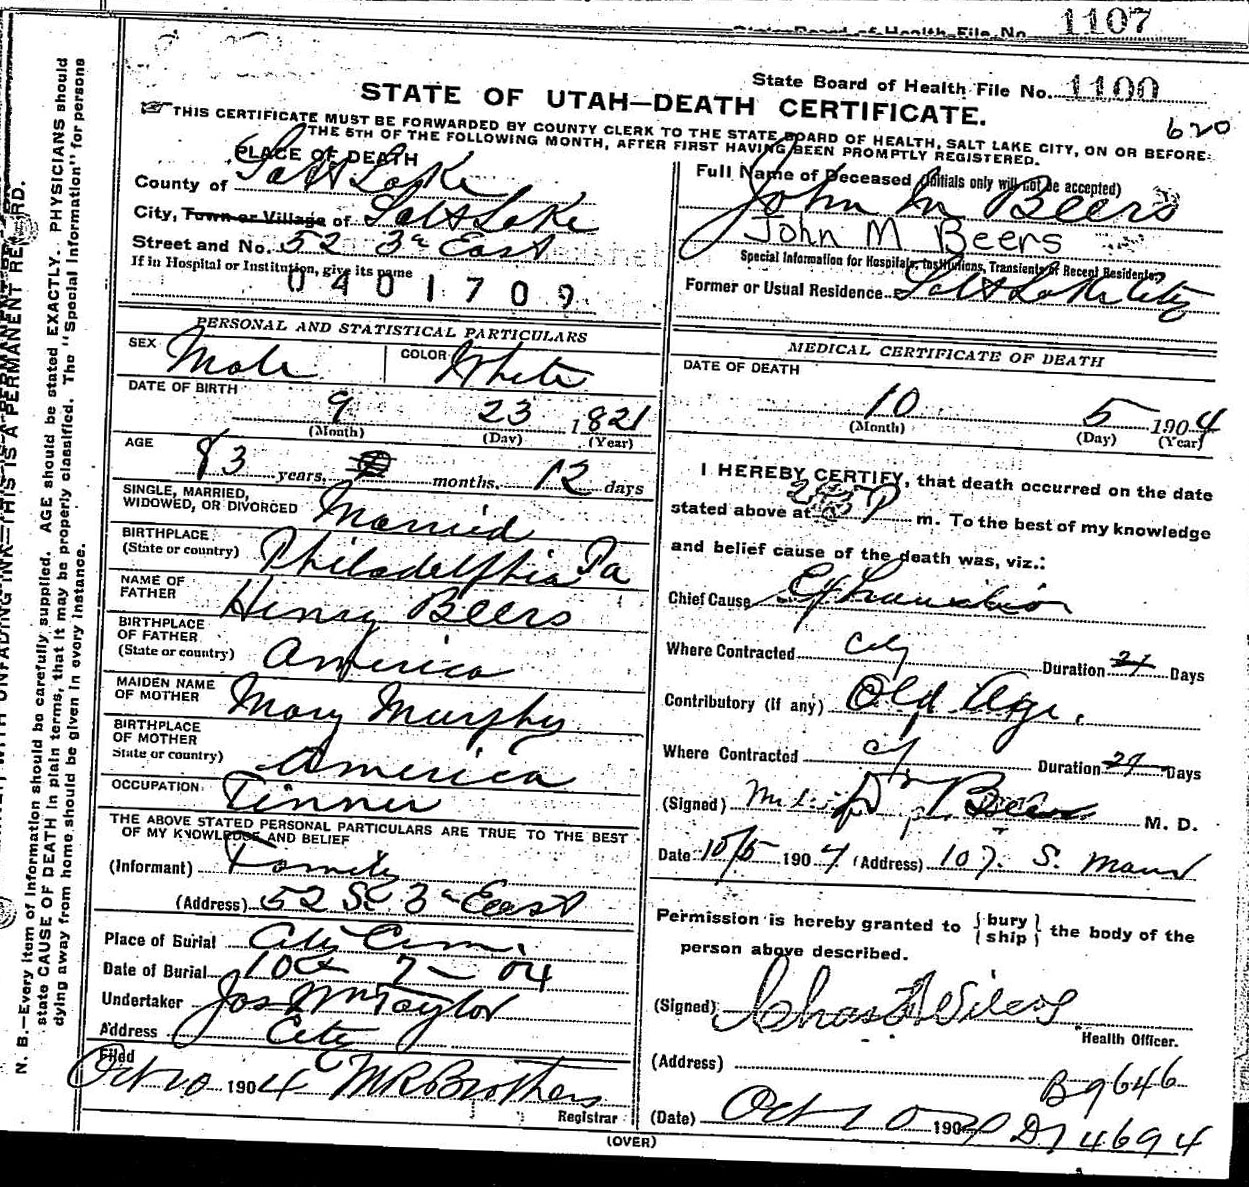 State Board of Health File No. 1107
State Board of Health File No. 1100
STATE OF UTAH—DEATH CERTIFICATE.
620
THIS CERTIFICATE MUST BE FORWARDED BY COUNTY CLERK TO THE STATE BOARD OF HEALTH, SALT LAKE CITY, ON OR BEFORE
THE 5TH OF THE FOLLOWING MONTH, AFTER FIRST HAVING BEEN PROMPTLY REGISTERED.
PLACE OF DEATH
County of Salt Lake
City, Town or Village of Salt Lake
Street and No. 52 3d East
If in Hospital or Institution, give its name
0401709
Full Name of Deceased (Initials only will not be accepted)
John M Beers
John M Beers
Special Information for Hospitals, Institutions, Transients or Recent Residents
Former or Usual Residence Salt Lake City
PERSONAL AND STATISTICAL PARTICULARS
SEX Male COLOR White
DATE OF BIRTH
9 23 1821
(Month) (Day) (Year)
AGE
83 years, months. 12 days
SINGLE, MARRIED,
WIDOWED, OR DIVORCED Married
BIRTHPLACE
(State or country) Philadelphia Pa
NAME OF
FATHER Henry Beers
BIRTHPLACE
OF FATHER
(State or country) America
MAIDEN NAME
OF MOTHER Mary Murphy
BIRTHPLACE
OF MOTHER
State or country) America
OCCUPATION Tinner
THE ABOVE STATED PERSONAL PARTICULARS ARE TRUE TO THE BEST
OF MY KNOWLEDGE AND BELIEF
(Informant) Family
(Address) 52 So 3d East
Place of Burial City Cem.
Date of Burial Oct 7 - 04
Undertaker Jos Wm Taylor
Address City
Filed
Oct 10 1904 M R Brothers
Registrar
MEDICAL CERTIFICATE OF DEATH
DATE OF DEATH
10 5 1904
(Month) (Day) (Year)
I HEREBY CERTIFY, that death occurred on the date
stated above at P m. To the best of my knowledge
and belief cause of the death was, viz.:
Chief Cause Exhaustion
Where Contracted City Duration 21 Days
Contributory (If any) Old Age.
Where Contracted Duration Days
(Signed) Beer M. D.
Date 10/5 1904 (Address) 107. S. Main
Permission is hereby granted to bury
ship the body of the
person above described.
(Signed) Chas F Wilcox
Health Officer.
(Address)
B9646
(Date) Oct 10 190 D14694
(OVER)
N. B.—Every item of information should be carefully supplied. AGE should be stated EXACTLY. PHYSICIANS should
state CAUSE OF DEATH in plain terms, that it may be properly classified. The "Special Information" for persons
dying away from home should be given in every instance.
WITH UNFADING INK—THIS IS A PERMANENT RECORD.